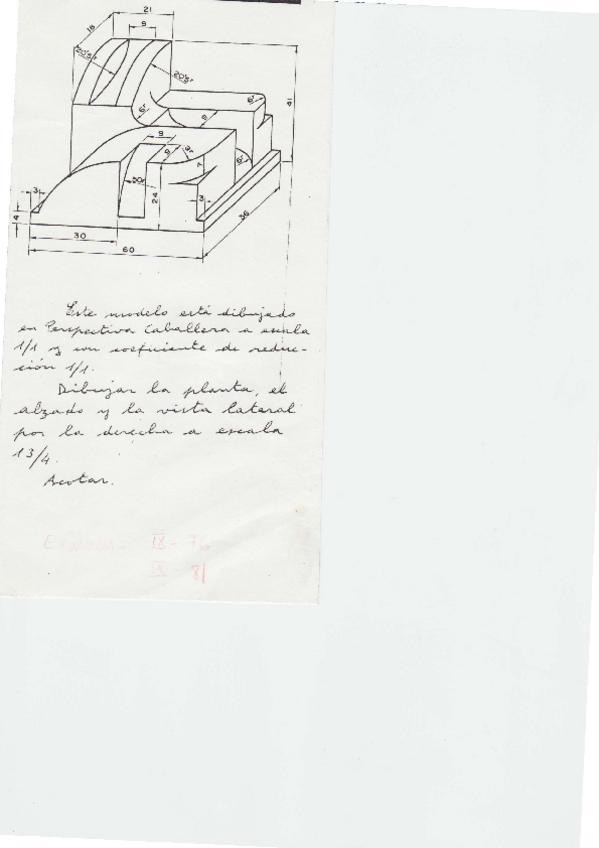 21
18
9
20'5r
20'5r
41
6r
9
6r
9
9
3r
7
6r
3
30r
24
3
4
36
30
60
Este modelo está dibujado
en Perspectiva Caballera a escala
1/1 y con coeficiente de reduc-
ción 1/1.
Dibujar la planta, el
alzado y la vista lateral
por la derecha a escala
13/4.
Acotar.
IX - 76
81